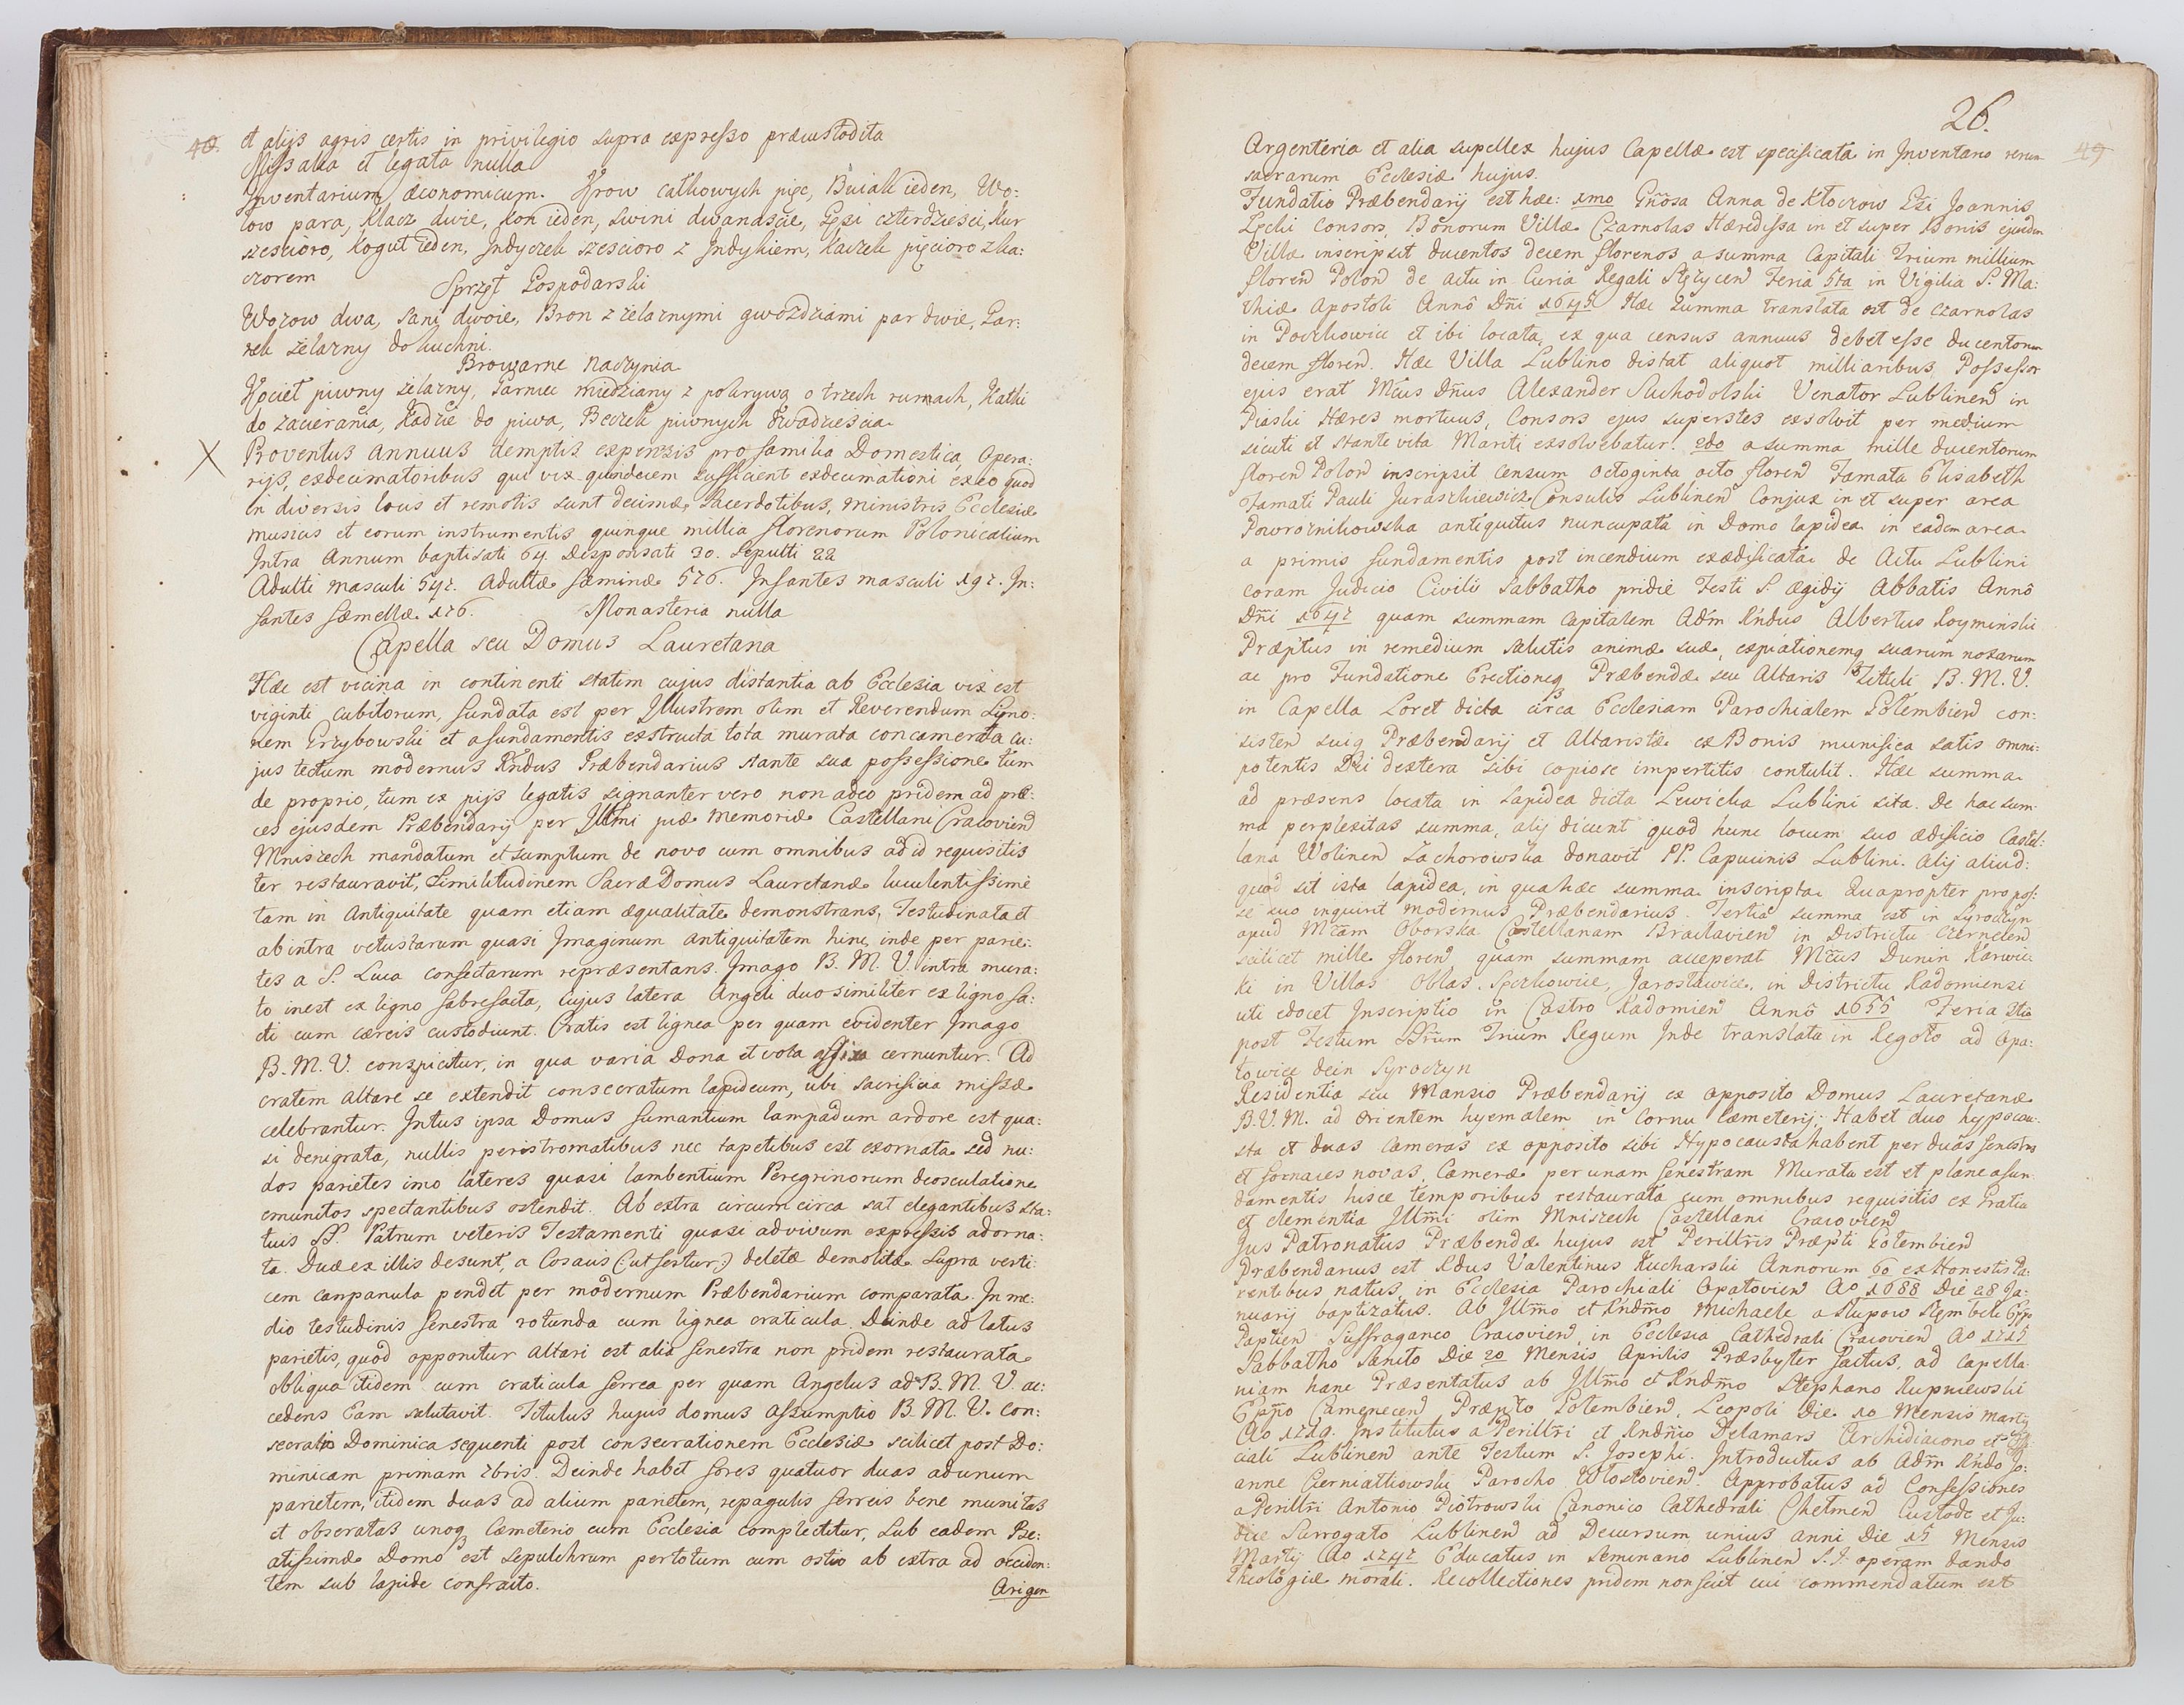 48.
et alijs agris certis in privilegio supra expresso præcustodita
Missalia et legata nulla
Inventarium œconomicum. Krow całkowych pięć, Buiak ieden, Wo:
łow para, Klacz dwie, Kon ieden, Swini dwanascie, Gęsi czterdziesci, Kur
szescioro, Kogut ieden, Jndyczek szescioro z Jndykiem, Kaczek pięcioro z ka:
czorem
Sprzęt Gospodarski
Wozow dwa, Sani dwoie, Bron z żelaznymi gwozdziami par dwie, Gar:
nek żelazny do kuchni.
Browarne Naczynia
Kocieł piwny żelazny, Garniec miedziany z pokrywą o trzech rurnach, Kadki
do zacierania, Kadzie do piwa, Beczek piwnych dwadziescia
X Proventus annuus demptis expensis pro familia Domestica, Opera:
rijs, exdecimatoribus qui vix quindecim sufficient exdecimationi ex eo quod
in diversis locis et remotis sunt decimæ, Sacerdotibus, Ministris Ecclesiæ
musicis et eorum instrumentis quinque millia florenorum Polonicalium
Intra Annum baptisati 64 Desponsati 30. Sepulti 22
Adulti masculi 547. Adultæ fæminæ 576. Infantes masculi 197. In:
fantes fæmellæ 176. Monasteria nulla
Capella seu Domus Lauretana
Hæc est vicina in continenti statim cujus distantia ab Ecclesia vix est
viginti cubitorum, fundata est per Illustrem olim et Reverendum Syno:
nem Grzybowski et a fundamentis exstructa tota murata concamerata cu:
jus tectum modernus Rñdus Præbendarius stante sua possessione tum
de proprio, tum ex pijs legatis signanter vero non adeo pridem ad præ:
ces ejusdem Præbendarij per Illmi piæ memoriæ Castellani Cracovien
Mniszech mandatum et sumptum de novo cum omnibus ad id requisitis
ter restauravit, Similitudinem Sacræ Domus Lauretanæ luculentissime
tam in Antiquitate quam etiam æqualitate demonstrans, Testudinata et
ab intra vetustarum quasi Imaginum antiquitatem hinc inde per parie:
tes a S. Luca confectarum repræsentans. Imago B. M. V. intra mura:
to inest ex ligno fabrefacta, cujus latera Angeli duo similiter ex ligno fa:
cti cum cæreis custodiunt. Cratis est lignea per quam evidenter Imago
B. M. V. conspicitur, in qua varia Dona et vota affixa cernuntur. Ad
cratem Altare se extendit consecratum lapideum, ubi sacrificia missæ
celebrantur. Intus ipsa Domus fumantium lampadum ardore est qua:
si denigrata, nullis peristromatibus nec tapetibus est exornata sed nu:
dos parietes imo lateres quasi lambentium Peregrinorum deosculatione
emunitos spectantibus ostendit. Ab extra circum circa sat elegantibus sta:
tuis SS. Patrum veteris Testamenti quasi ad vivum expressis adorna:
ta. Duæ ex illis desunt, a Cosacis (: ut fertur :) deletæ demolitæ. Supra verti:
cem canpanula pendet per modernum Præbendarium comparata. In me:
dio testudinis fenestra rotunda cum lignea craticula. Deinde ad latus
parietis, quod opponitur altari est alia fenestra non pridem restaurata
obliqua itidem cum craticula ferrea per quam Angelus ad B. M. V. ac:
cedens Eam salutavit. Titulus hujus domus Assumptio B. M. V. Con:
secratio Dominica sequenti post consecrationem Ecclesiæ scilicet post Do:
minicam primam 7bris. Deinde habet fores quatuor duas ad unum
parietem, itidem duas ad alium parietem, repagulis ferreis bene munitas
et obseratas unoq Cæmeterio cum Ecclesia complectitur, Sub eadem Be:
atissimæ Domo est sepulchrum pertotum cum ostio ab extra ad occiden:
tem sub lapide confracto.
Argen
26.
49
Argenteria et alia supellex hujus Capellæ est specificata in Inventario rerum
sacrarum Ecclesiæ hujus.
Fundatio Præbendarij est hæc: 1mo Gñosa Anna de Kłoczow Gsi Joannis
Lęcki Consors, Bonorum Villæ Czarnolas Hæredissa in et super Bonis ejusdem
Villæ inscripsit ducentos decem florenos a summa Capitali Trium millium
floren Polon de actu in Curia Regali Stężycen Feria 5ta in Vigilia S. Ma:
thiæ Apostoli Annô Dñi 1645. Hæc Summa translata est de Czarnolas
in Poczkowice et ibi locata, ex qua census annuus debet esse ducentorum
decem floren. Hæc Villa Lublino distat aliquot milliaribus, Possessor
ejus erat Mcus Dñus Alexander Suchodolski Venator Lublinen in
Piaski Hæres mortuus, Consors ejus superstes exsolvit per medium
sicuti et stante vita Mariti exsolvebatur. 2do a summa mille ducentorum
floren Polon inscripsit censum octoginta octo floren Famata Elisabeth
Famati Pauli Juraszkiewicz Consulis Lublinen Conjux in et super area
Powroznikowska antiquitus nuncupata in Domo lapidea in eadem area
a primis fundamentis post incendium exædificata de Actu Lublini
coram Judicio Civili Sabbatho pridie Festi S. Ægidij Abbatis Annô
Dñi 1647 quam summam capitalem Adm Rńdus Albertus Koyminski
Præptus in remedium salutis animæ suæ, expiationemq suarum noxarum
ac pro Fundatione Erectioneq Præbendæ seu Altaris Tituli B. M. V.
in Capella Loret dicta circa Ecclesiam Parochialem Golembien con:
sisten suiq Præbendarij et Altaristæ ex Bonis munifica satis omni:
potentis Dei dextera sibi copiose impertitis contulit. Hæc summa
ad præsens locata in lapidea dicta Lewicka Lublini sita. De hac sum:
ma perplexitas summa, alij dicunt quod hunc locum suo ædificio Castel:
lana Wolinen Zachorowska donavit PP. Capucinis Lublini. Alij aliud:
quod sit ista lapidea, in qua hæc summa inscripta. Quapropter pro pos:
se suo inquirit modernus Præbendarius. Tertia summa est in Syroczyn
apud Mcam Oborska Castellanam Braclavien in Districtu Czerncen
scilicet mille floren quam summam acceperat Mcus Dunin Karwic:
ki in Villas Oblas, Speczkowice, Jarosławice, in Districtu Radomiensi
uti edocet Inscriptio in Castro Radomien Annô 1655 Feria 3tia
post Festum SSrum Trium Regum Inde translata in Regoto ad Opa:
towice dein Syroczyn
Residentia seu Mansio Præbendarij ex opposito Domus Lauretanæ
B. V. M. ad orientem hyemalem in Cornu Cæmeterij. Habet duo hypocau:
sta et duas Cameras ex opposito sibi Hypocausta habent per duas fenestras
et fornaces novas, Cameræ per unam fenestram Murata est et plane a fun:
damentis hisce temporibus restaurata cum omnibus requisitis ex Gratia
et clementia Illmi olim Mniszech Castellani Cracovien
Jus Patronatus Præbendæ hujus est Perillris Præpti Golembien
Præbendarius est Rdus Valentinus Kucharski Annorum 60 ex Honestis Pa:
rentibus natus, in Ecclesia Parochiali Opatovien Ao 1688 Die 28 Ja:
nuarij baptizatus. Ab Illmo et Rndmo Michaele a Słupow Szembek Epp
Paphen Suffraganeo Cracovien in Ecclesia Cathedrali Cracovien Ao 1715
Sabbatho Sancto Die 20 Mensis Aprilis Præsbyter factus, ad Capella:
niam hanc Præsentatus ab Illmo et Rndmo Stephano Rupniewski
Eppo Camenecen Præpto Golembien, Leopoli Die 10 Mensis Martij
Ao 1719. Institutus a Perillri et Rndmo Delamars Archidiacono et Offi
ciali Lublinen ante Festum S. Josephi. Introductus ab Adm Rńdo Jo:
anne Czerniatkowski Parocho Włostovien. Approbatus ad Confessiones
a Perillri Antonio Piotrowski Canonico Cathedrali Chelmen Custode et Ju:
dice Surrogato Lublinen ad Decursum unius anni Die 15 Mensis
Martij Ao 1747 Educatus in Seminario Lublinen S. J. operam dando
Theologiæ morali. Recollectiones pridem non fecit cui commendatum est